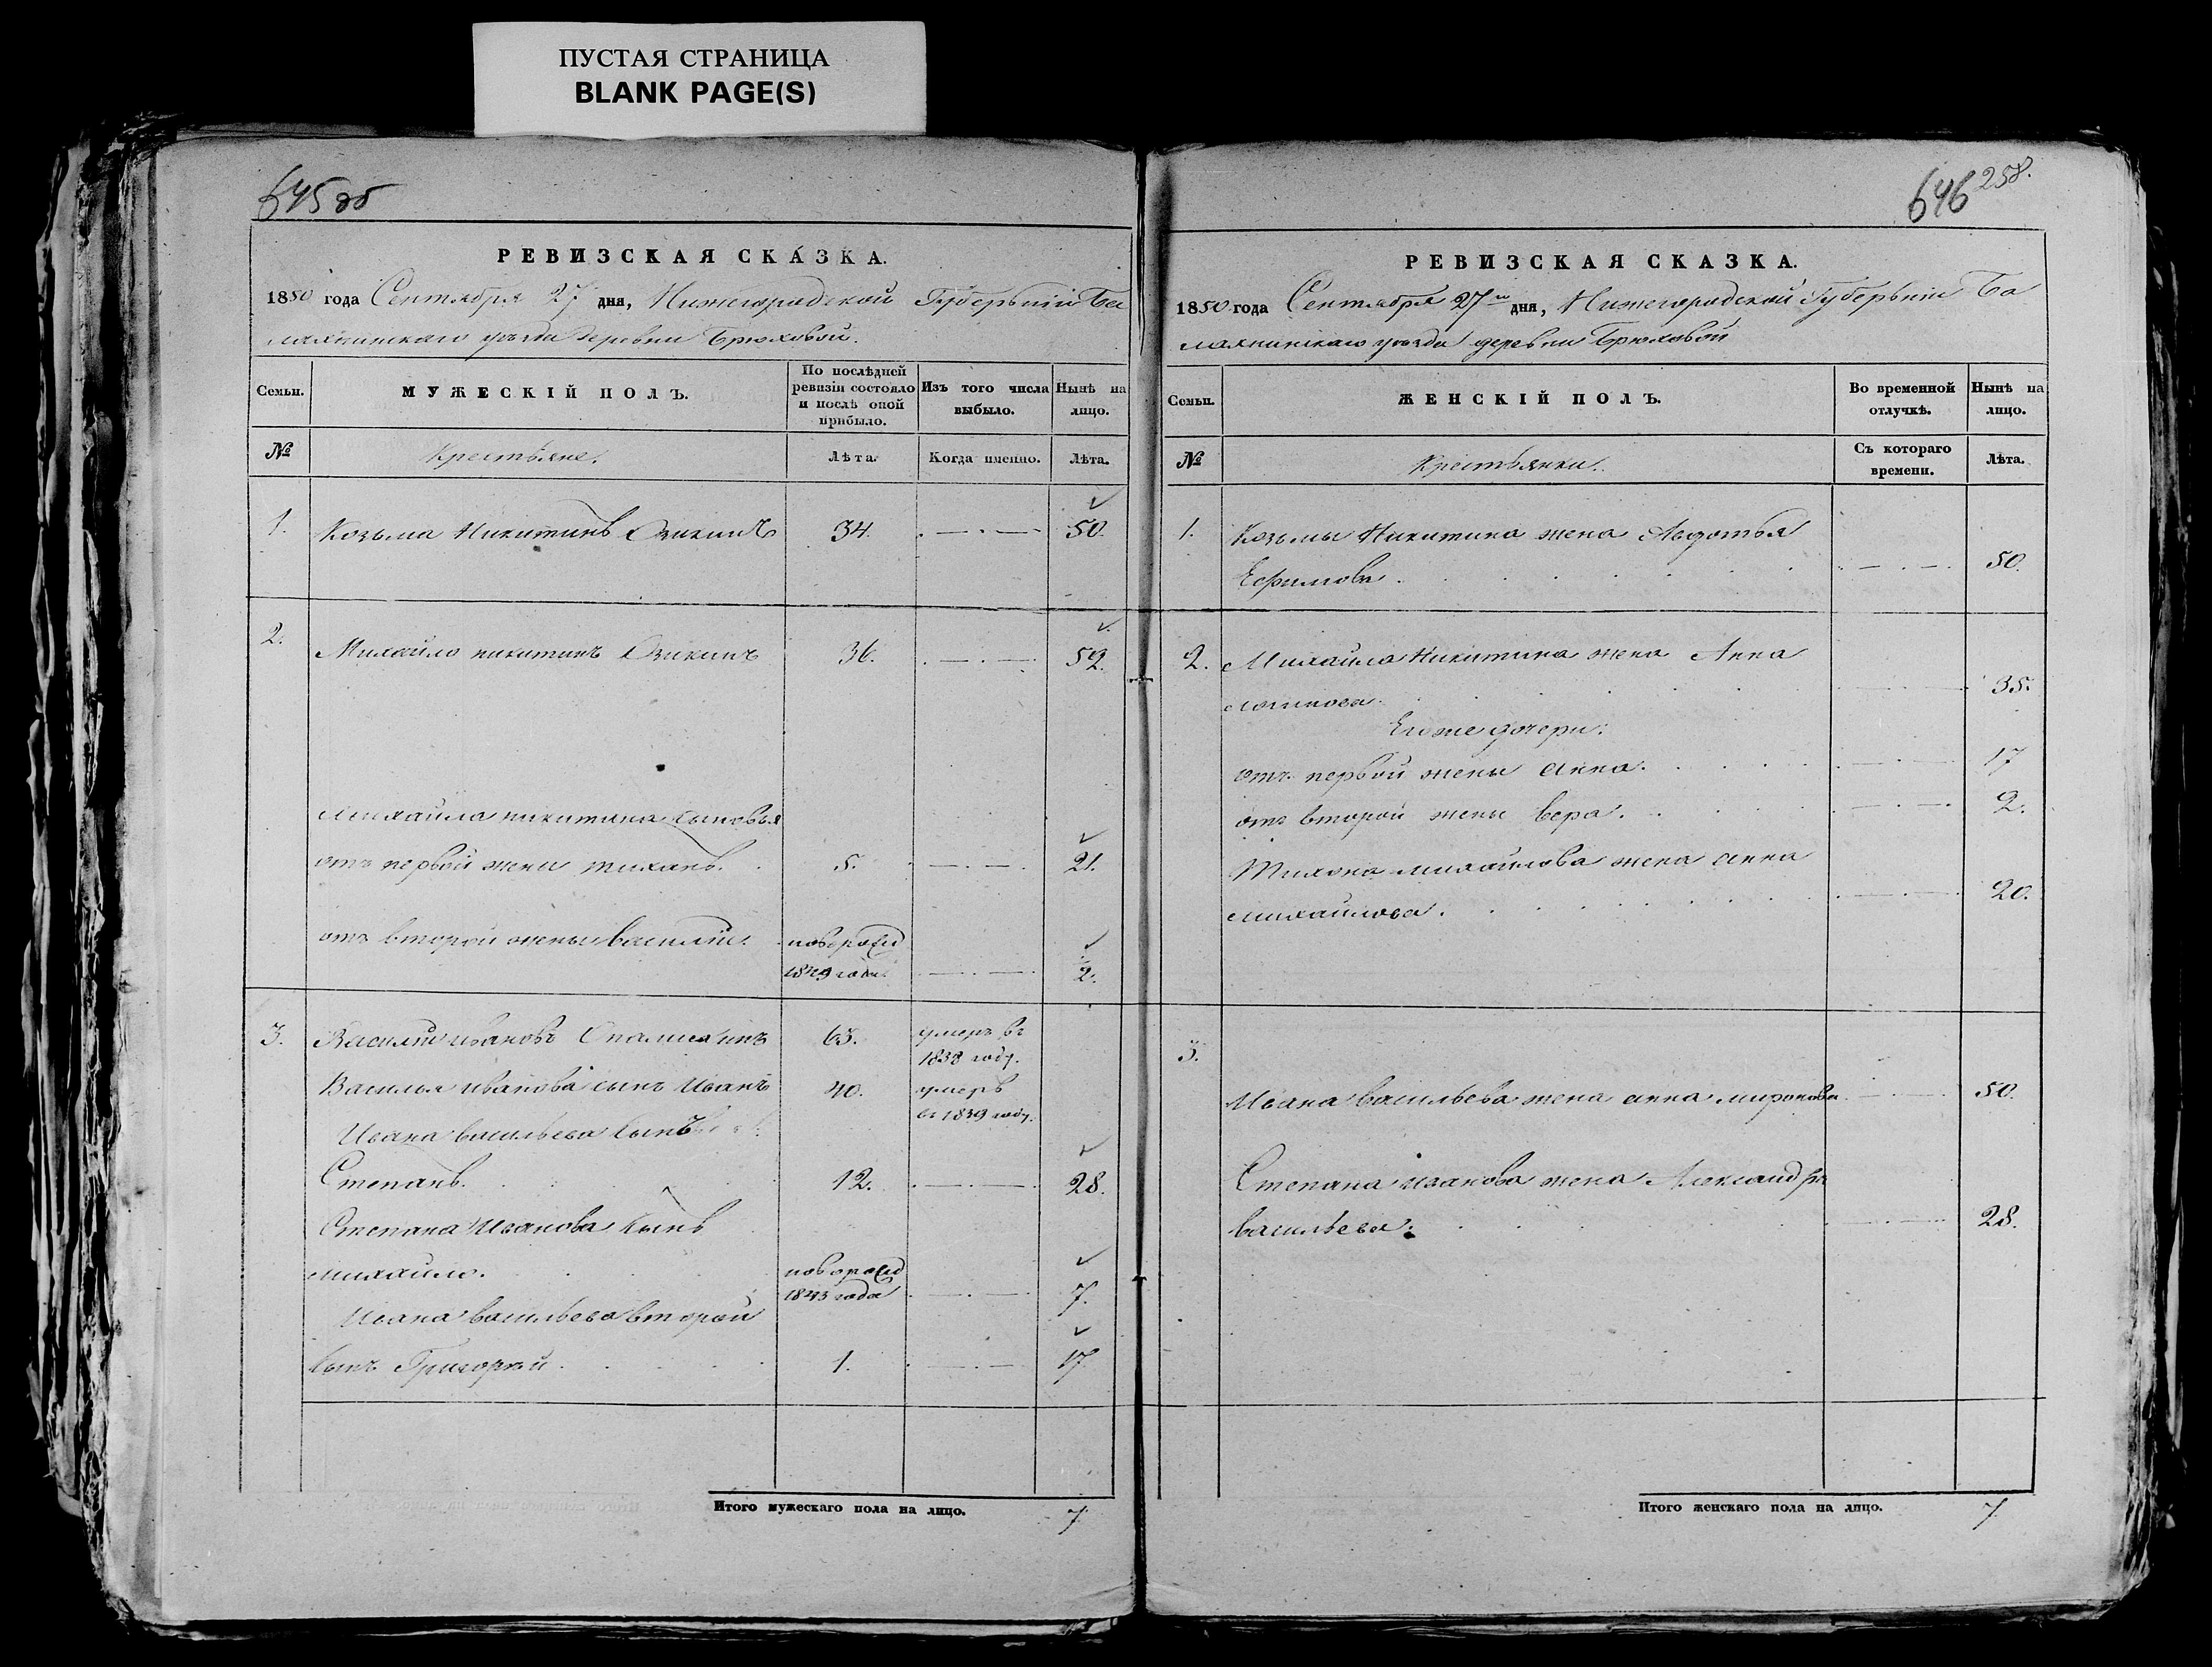 ПУСТАЯ СТРАНИЦА
BLANK PAGE(S)
645 об
РЕВИЗСКАЯ СКАЗКА.
1850 года Сентября 27 дня, Нижегородской Губернии Ба
лахнинскаго уезда деревни Брюховой.
Семьи.
МУЖЕСКІЙ ПОЛЪ.
По послѣдней ревизіи состояло и послѣ оной прибыло.
Изъ того числа выбыло.
Нынѣ на лицо.
№
Крестьяне.
Лѣта.
Когда именно.
Лѣта.
1. Козьма Никитинъ 34. 50.
2. Михайло никитинъ 36. 52.
Михайла никитина сыновья
отъ первой жены тиханъ. 5. 21.
отъ второй жены василій. новорожд
1849 года 2.
3. Василій ивановъ 63. умеръ въ
1838 году.
Василья иванова сынъ Иванъ 40. умеръ
въ 1839 году.
Ивана васильева сынъ
Степанъ. 12. 28.
Степана Иванова сынъ
михайло. новорожд
1843 года 7.
Ивана васильева второй
сынъ Григорей. 1. 17
Итого мужескаго пола на лицо. 7
646 258.
РЕВИЗСКАЯ СКАЗКА.
1850 года Сентября 27го дня, Нижегородской Губерніи Ба
лахнинскаго уезда деревни Брюховой
Семьи.
ЖЕНСКІЙ ПОЛЪ.
Во временной отлучкѣ.
Нынѣ на лицо.
№
Крестьянки.
Съ котораго времени.
Лѣта.
1. Козьмы Никитина жена Авдотья
Ефимова. 50.
2. Михайла Никитина жена Анна
35.
Егоже дочери:
отъ первой жены анна. 17
отъ второй жены вера. 2.
Тихона михайлова жена анна
михайлова. 20.
3.
Ивана васильева жена анна миронова 50.
Степана иванова жена Александра
васильева. 28.
Итого женскаго пола на лицо. 7